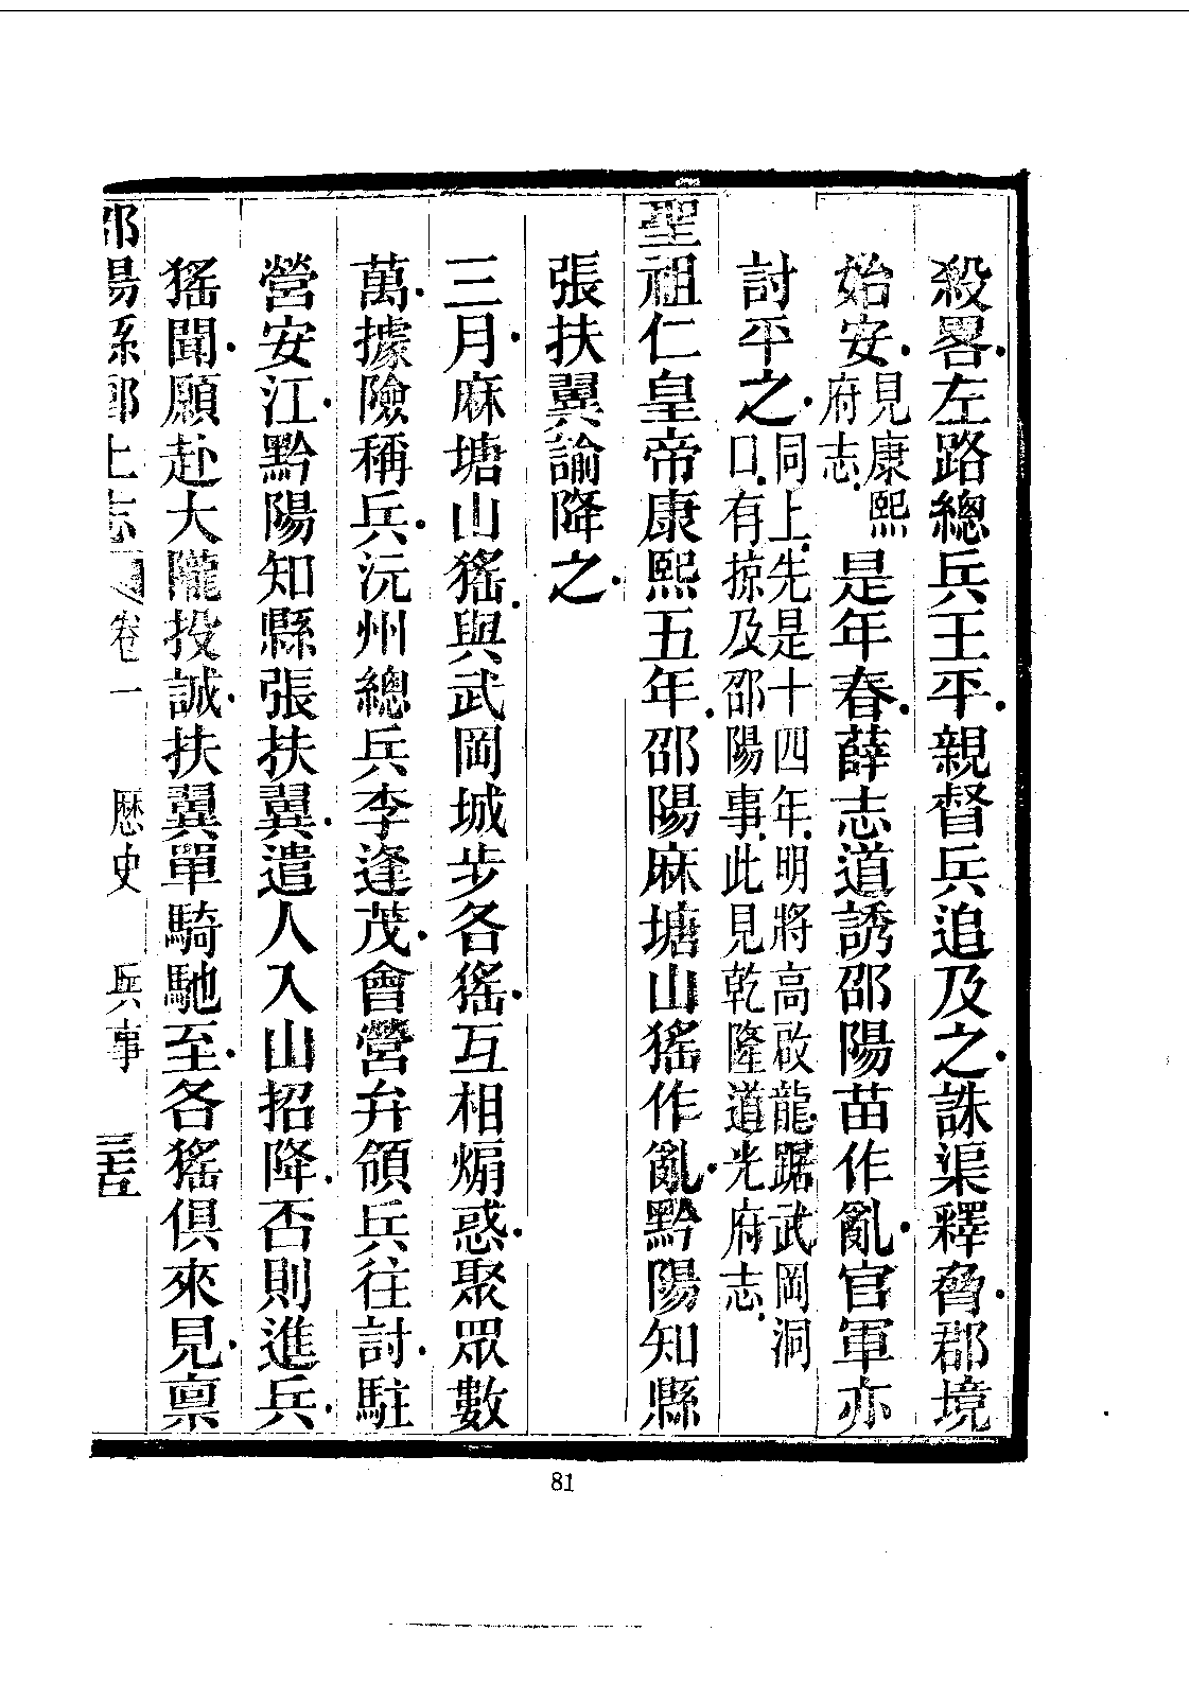 殺畧左路總兵王平親督兵追及之誅渠釋脅郡境
始安見康熙府志是年春薛志道誘邵陽苗作亂官軍亦
討平之同上先是十四年明將高啟龍踞武岡洞口有掠及邵陽事此見乾隆道光府志
聖祖仁皇帝康熙五年邵陽麻塘山猺作亂黔陽知縣
張扶翼諭降之
三月麻塘山猺與武岡城步各猺互相煽惑聚眾數
萬據險稱兵沅州總兵李逢茂會營弁領兵往討駐
營安江黔陽知縣張扶翼遣人入山招降否則進兵
猺聞願赴大隴投誠扶翼單騎馳至各猺俱來見禀
邵陽縣鄉土志 卷一 歷史 兵事 三十五
81